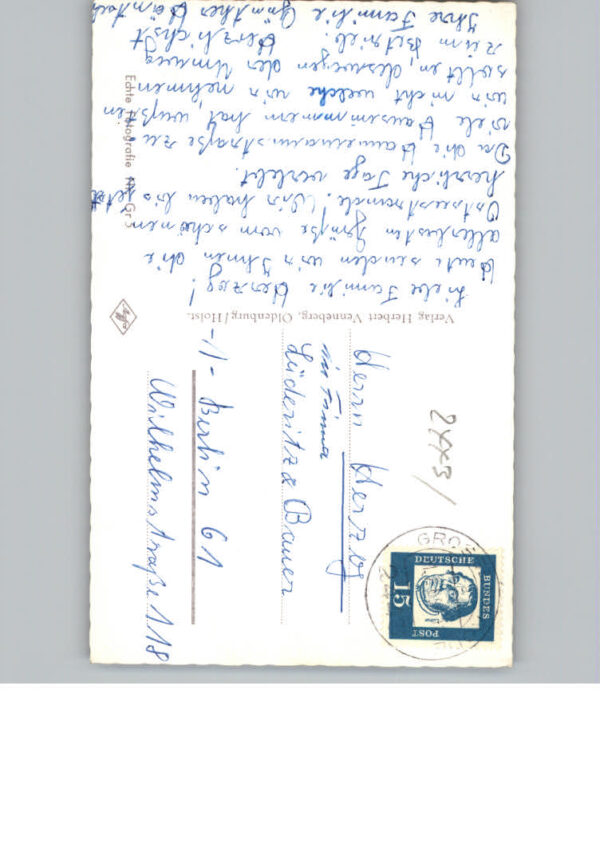 Liebe Familie Herzog!
Heute senden wir Ihnen die
allerbesten Grüße vom schönen
Ostseestrande. Wir haben bis jetzt
herrliche Tage verlebt.
Da die Hausmannstraße zu
viele Hausnummern hat, wußten
wir nicht welche wir nehmen
sollten, deswegen der Umweg
zum Betrieb. Herzlichst
Ihre Familie Günther
Echte Fotografie
Verlag Herbert Venneberg, Oldenburg/Holst.
Agfa
Herrn Herzog
in Firma
Lüderitz & Bauer
-1- Berlin 61
Wilhelmstraße 118
DEUTSCHE
BUNDES
POST
15
GROS